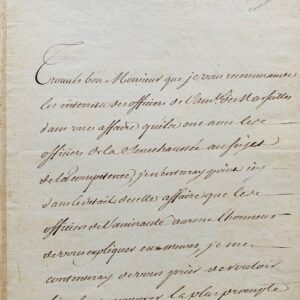 Trouués bon Monsieur que je vous recommande
les interests des officiers de l'am.té de Marseilles
dans une affaire qu'ils ont avec les
officiers de la Senechaussée au sujet
de la competence, je n'entreray point icy
dans le detail de cette affaire que les
officiers de l'amirauté auront l'honneur
de vous expliquer eux mesmes, je me
contenteray de vous prier de vouloir
la plus prompte